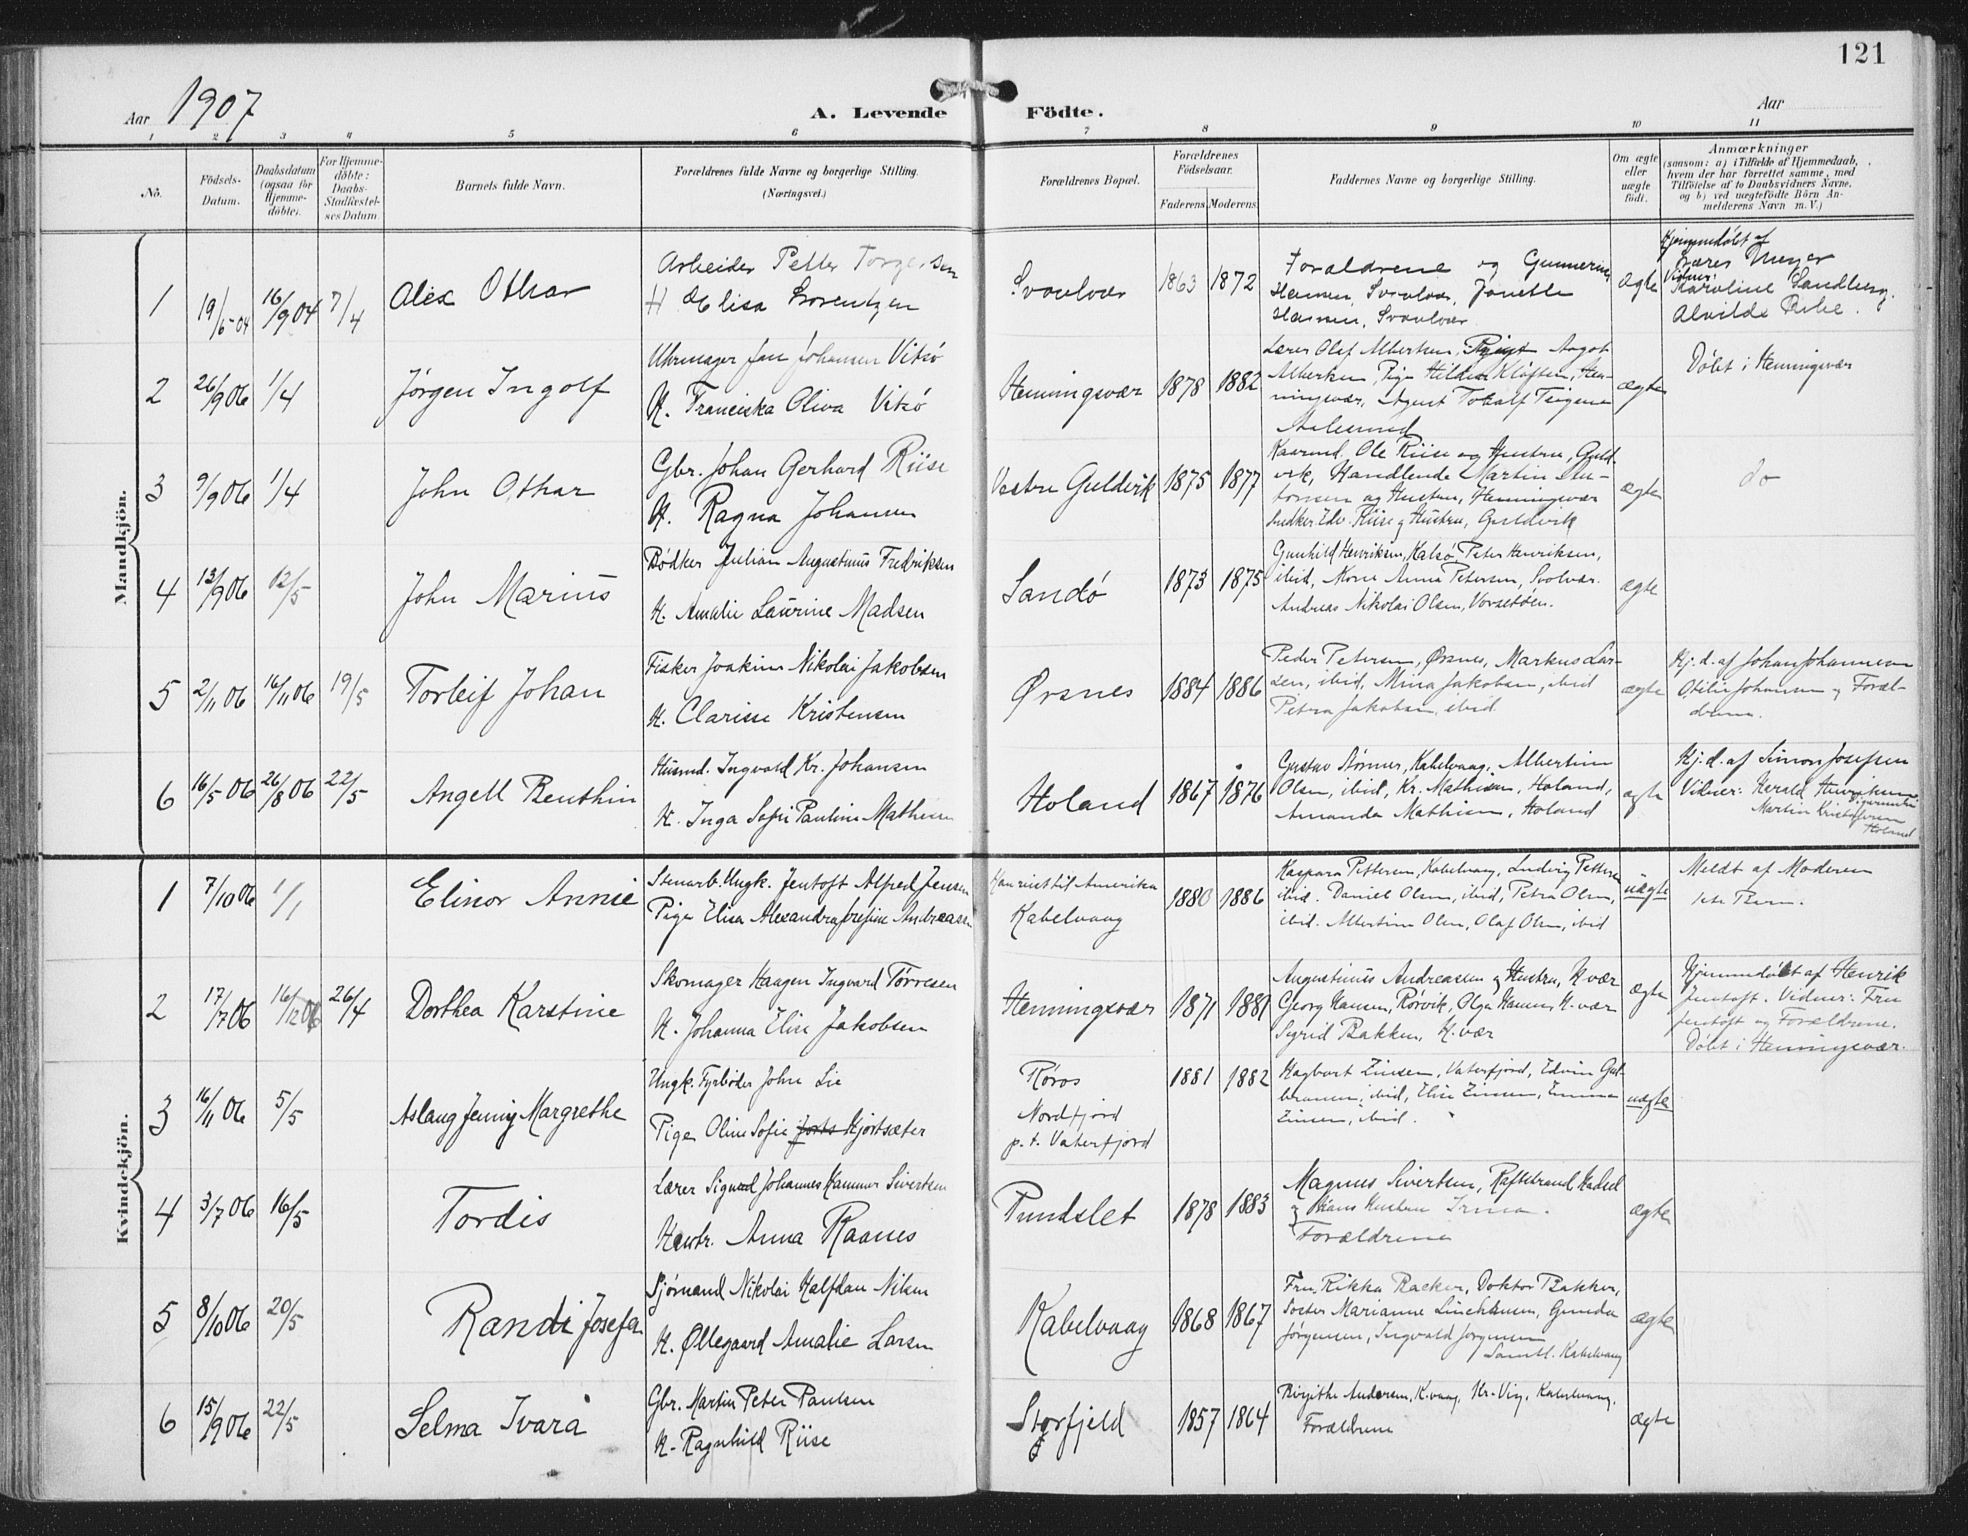 121
Aar 1907
A. Levende Födte.
Aar
1 2 3 4 5 6 7 8 9 10 11
No.
Födsels-
Datum.
Daabsdatum
(ogsaa for
Hjemme-
döbte).
For Hjemme-
döbte:
Daabs-
Stadfæstel-
ses Datum.
Barnets fulde Navn.
Forældrenes fulde Navne og borgerlige Stilling.
(Næringsvei.)
Forældrenes Bopæl.
Forældrenes
Födselsaar.
Faderens. Moderens.
Faddernes Navne og borgerlige Stilling.
Om ægte
eller
uægte
födt.
Anmærkninger
(saasom: a) i Tilfælde af Hjemmedaab,
hvem der har forrettet samme, med
Tilföielse af to Daabsvidners Navne,
og b) ved uægtefödte Börn An-
melderens Navn m. V.)
Mandkjön.
1
19/5-04
16/9 04
7/4
Alex Othar
Arbeider Petter Torgersen
H Elisa Lorentzen
Svolvær
1863 1872
Forældrene og
Hansen, Svolvær, Janette
Hansen, Svolvær
ægte
Hjemmedøbt af
Lærer Meyer
Vidner:
Karoline Sandberg.
Alvilde
2
26/9 06
1/4
Jørgen Ingolf
Uhrmager Jan Johansen Vitsø
H. Franciska Oliva Vitsø
Henningsvær
1878 1882
Lærer Olaf Albertsen, Aagot
Albertsen Pige Hilda Kløften, Hen-
ningsvær, Agent
Aalesund
ægte
Døbt i Henningsvær
3
9/9 06
1/4
John Othar
Gbr. Johan Gerhard Riise
H. Ragna Johansen
Vestre Guldvik
1875 1877
Kaarmd. Ole Riise og Hustru, Guld-
vik, Handlende Martin
og Hustru, Henningsvær
Sndker Edv. Riise og Hustru, Guldvik
ægte
do
4
13/9 06
12/5
John Marius
Bødker Julian Augustinus Fredriksen
H. Amalie Laurine Madsen
Sandø
1873 1875
Gunhild Henriksen, Kalsø, Peter Henriksen,
ibid, Kone Anna Petersen, Svolvær.
Andreas Nikolai Olsen, Vorsetøen.
ægte
5
2/11 06
16/11 06
19/5
Torleif Johan
Fisker Joakim Nikolai Jakobsen
H. Clarisse Kristensen
Ørsnes
1884 1886
Peder Petersen, Ørsnes, Markus Lar-
sen, ibid, Mina Jakobsen, ibid
Petra Jakobsen, ibid.
ægte
Hj. d. af Johan Johannesen
Otilie Johansen og Foræl-
drene.
6
16/5 06
26/8 06
22/5
Angell Benthin
Husmd. Ingvald Kr. Johansen
H. Inga Sofie Pauline Mathisen
Holand
1867 1876
Gustav Størmer, Kabelvaag, Albertine
Olsen, ibid, Kr. Mathisen, Holand,
Amanda Mathisen, Holand
ægte
Hj. d. af Simon Josefsen
Vidner: Herald Henriksen
Martin Kristoffersen
Holand
Kvindekjön.
1
7/10 06
1/1
Elinor Annie
Stenarb. Ungk. Jentoft Alfred Jensen
Pige Elisa Alexandra Josefine Andreassen
Han reist til Amerika
Kabelvaag
1880 1886
Kaspara Pettersen, Kabelvaag, Ludvig Pettersen
ibid. Daniel Olsen, ibid, Petra Olsen,
ibid. Albertine Olsen, Olaf Olsen, ibid
uægte
Meldt af Moderen
1ste Barn.
2
17/7 06
16/12 06
26/4
Dorthea Karstine
Skomager Haagen Ingvard Tørresen
H. Johanna Elise Jakobsen
Henningsvær
1871 1881
Augustinus Andreassen og Hustru, H.vær
Georg Hansen, Rørvik, Olga Hansen, H.vær
Sigrid Bakken, H.vær
ægte
Hjemmedøbt af Henrik
Jentoft. Vidner: Fru
Jentoft og Forældrene.
Døbt i Henningsvær.
3
16/11 06
5/5
Aslaug Jenny Margrethe
Ungk. Fyrbøder John Lie
Pige Oline Sofie Hjortsæter
Røros
Nordfjord
p. t. Vaterfjord
1881 1882
Hagbart Zinsen, Vaterfjord, Edvin Gul-
bransen, ibid, Elise Zinsen, Emma
Zinsen, ibid.
uægte
4
3/7 06
16/5
Tordis
Lærer Sigurd Johannes Hammer Sivertsen
Hustr. Anna Raanes
Pundslet
1878 1883
Magnus Sivertsen, Raftsund Hadsel
og Hans Hustru Irma.
Forældrene
ægte
5
8/10 06
20/5
Randi Josefa
Sjømand Nikolai Halfdan Nilsen
H. Øllegaard Amalie Larsen
Kabelvaag
1868 1867
Fru Rikka Backer, Doktor Bakker,
Søster Marianne Linchausen, Gunda
Jørgensen, Ingvald Jørgensen
Samtl. Kabelvaag
ægte
6
15/9 06
22/5
Selma Ivara
Gbr. Martin Peter Paulsen
H. Ragnhild Riise
Storfjeld
1857 1864
Birgithe Andersen, K.vaag, Kr. Vig, Kabelvaag,
Forældrene
ægte